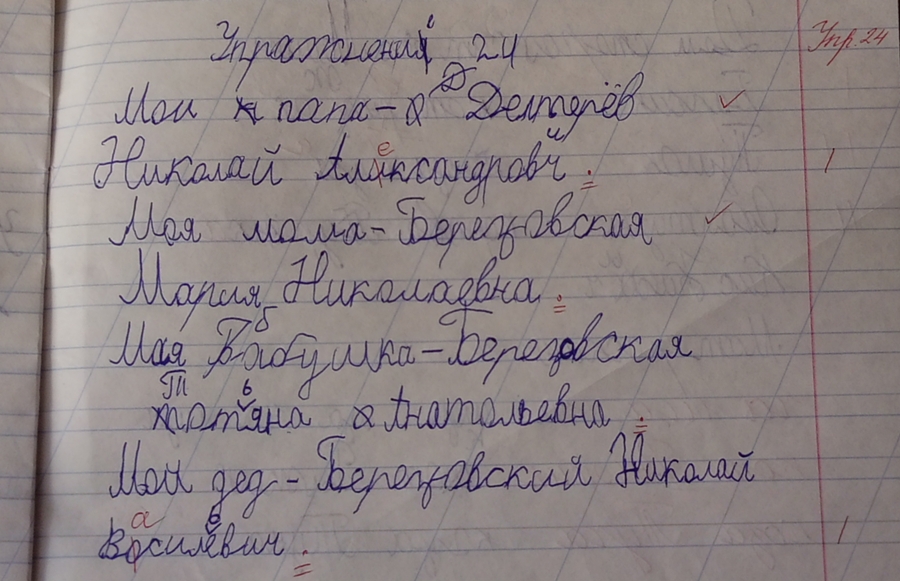 Упражнение 24
Упр. 24
Мои папа - Дегтерёв
Николай Александрович.
Моя мама - Березовская
Мария Николаевна.
Моя бабушка - Березовская
Татьяна Анатольевна.
Мой дед - Березовский Николай
Васильевич.